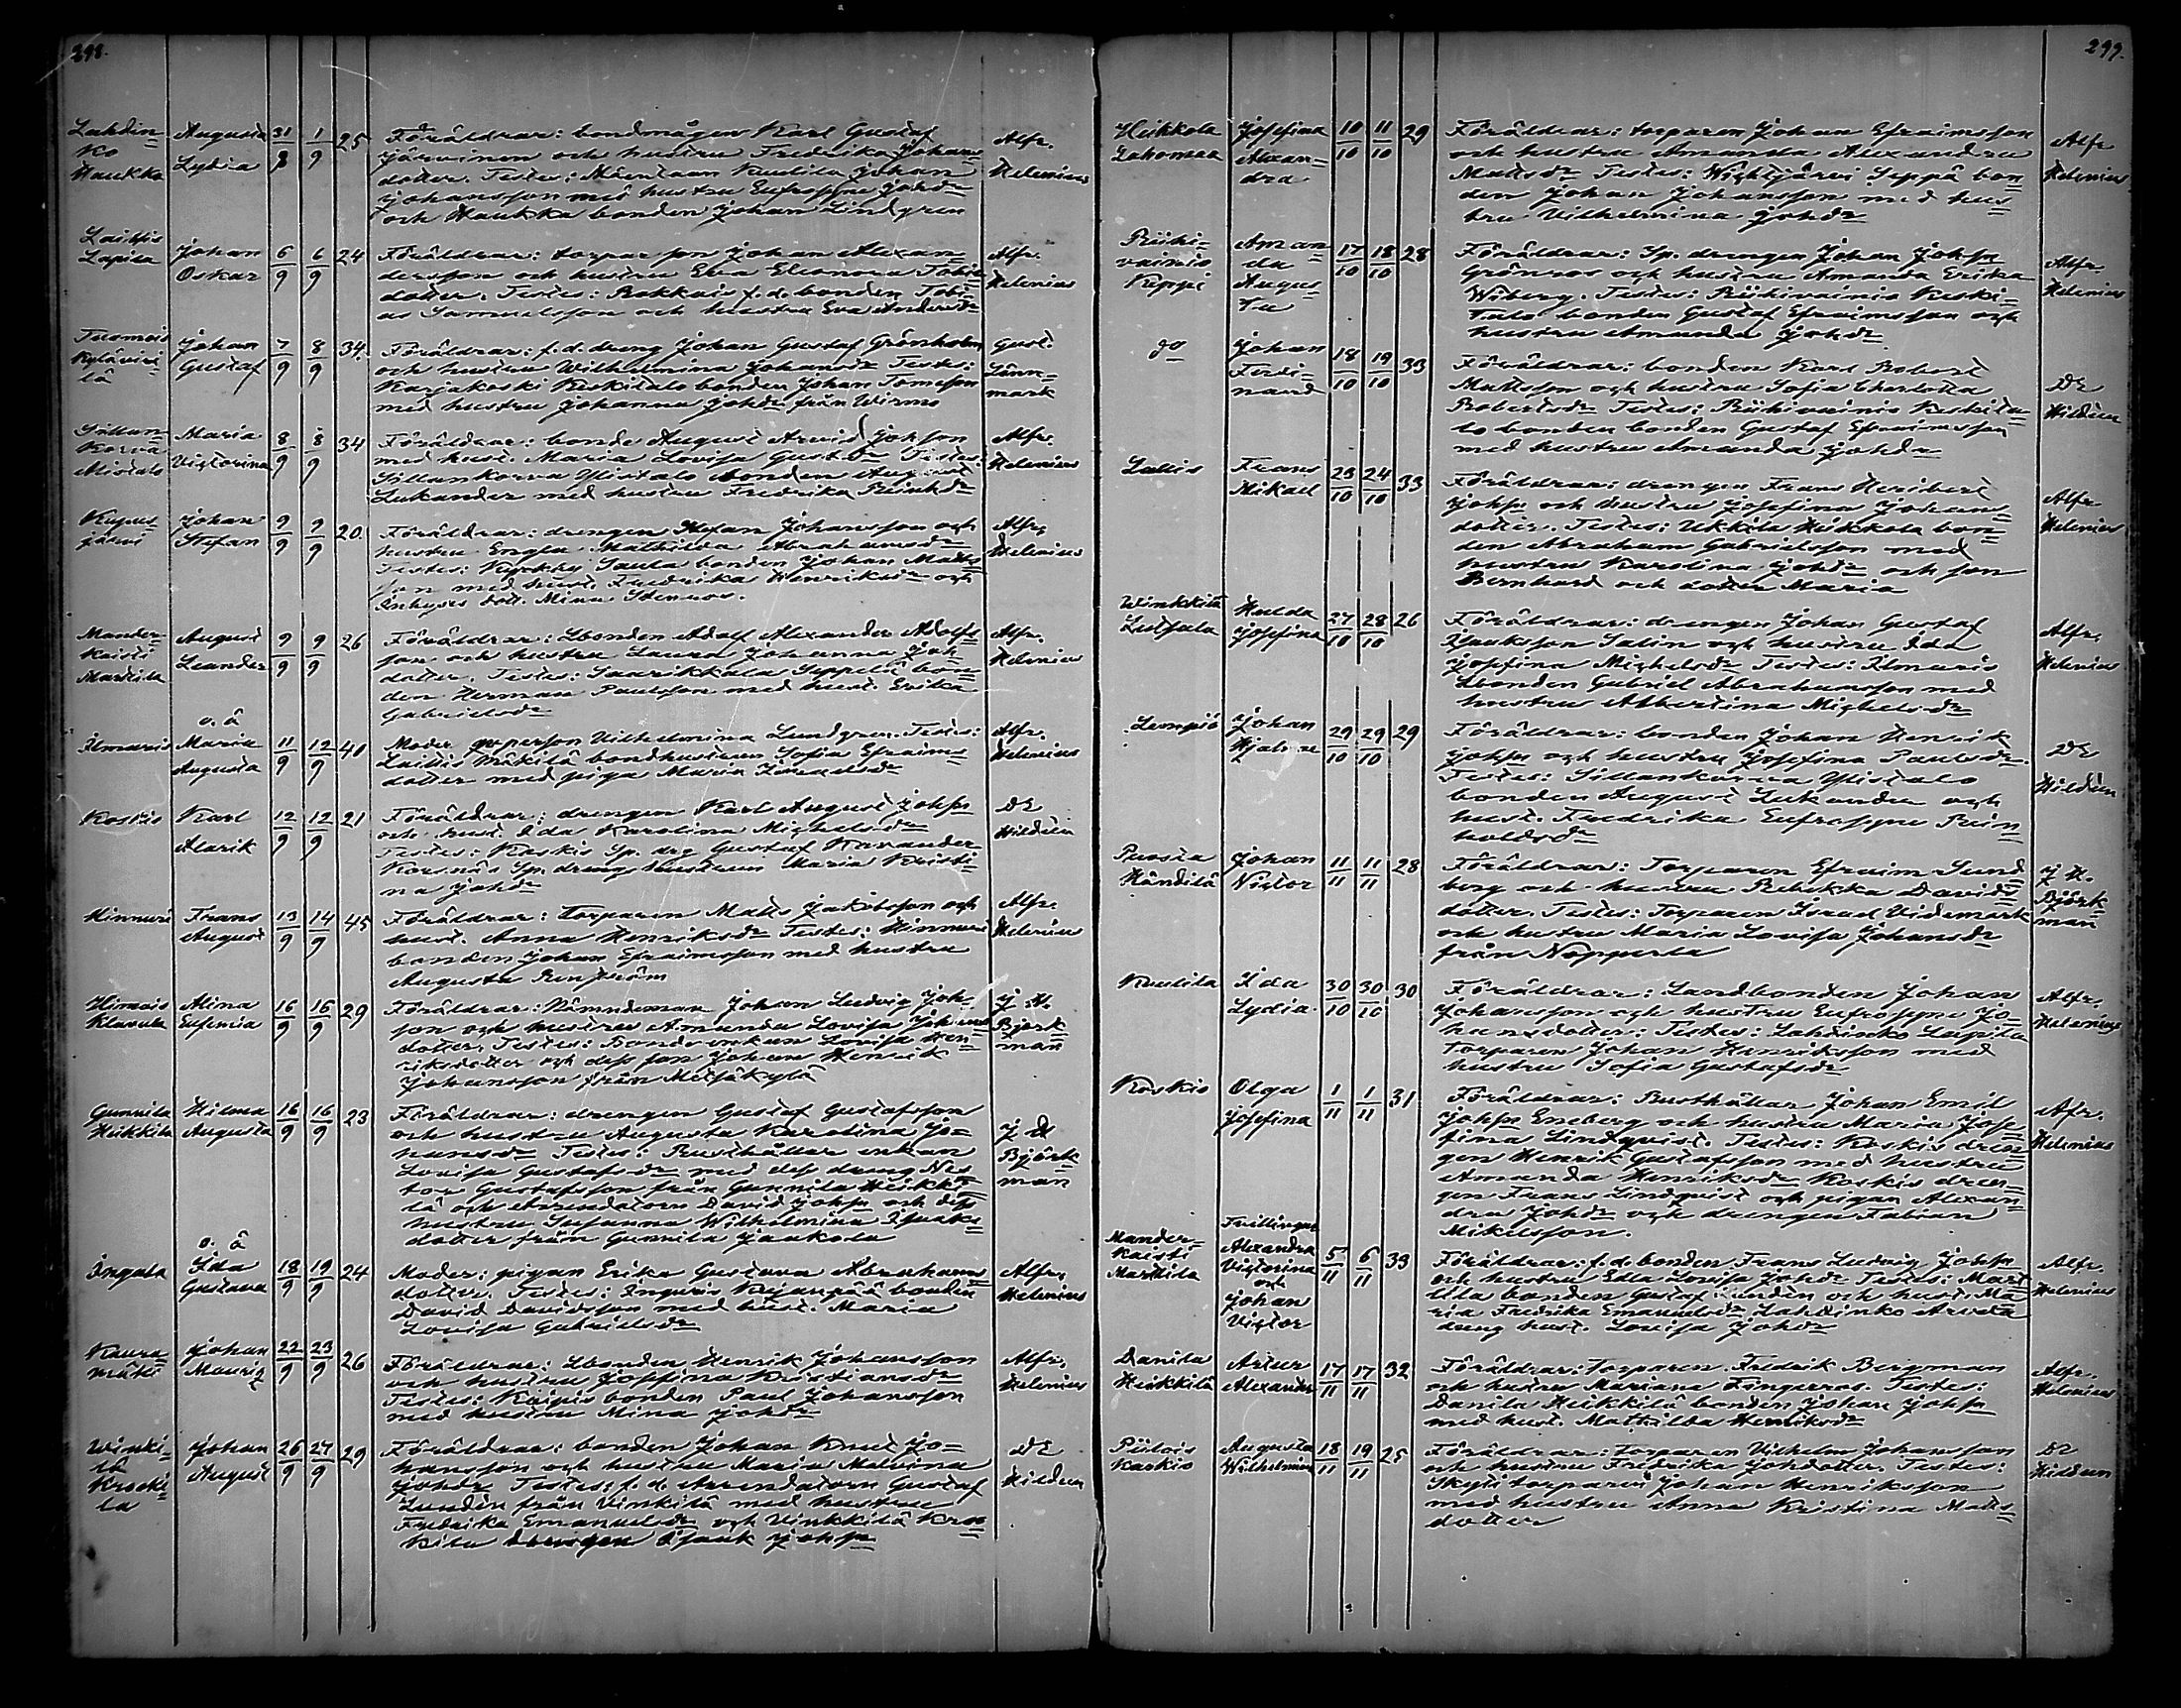 298.
Lahdin=
ko
Haukka
Augusta
Lydia
31/8 1/9 25
Föräldrar: bondmågen Karl Gustaf
Järvinen och hustru Fredrika Johans=
dotter. Testes: Kuulila Johan
Johansson med hustru Eufrosyne Johdr
och Haukka bonden Johan Lindgren
Alfr.
Helenius
Laitsis
Lapila
Johan
Oskar
6/9 6/9 24
Föräldrar: torpar son Johan Alexan=
dersson och hustru Eva Eleonora Tobia
dotter. Testes: Rokkois f.d. bonden Tobi=
as Samuelsson och hustru Eva Andersdr
Alfr.
Helenius
Tuomois
Kylävini=
lä
Johan
Gustaf
7/9 8/9 34
Föräldrar: f.d. dreng Johan Gustaf Grönholm
och hustru Wilhelmina Johansdr Testes:
Karjakoski Keskitalo bonden Johan Tomsson
med hustru Johanna Johdr från Wirmo
Gust.
Lönn=
mark
Sillan=
Korva
Alistalo
Maria
Victorina
8/9 8/9 34
Föräldrar: bonde August Arvid Johsson
med hust. Maria Lovisa Gustdr Testes:
Sillankorva Ylistalo bonden August
Lukander med hustru Fredrika Reinhdr
Alfr.
Helenius
Kupus
järvi
Johan
Stefan
9/9 9/9 20
Föräldrar: drengen Stefan Johansson och
hustru Engla Mathilda Abrahamsdr
Testes: Kyrkby Saula bonden Johan Matts
son med hust. Fredrika Henriksdr och
Inhyses dott. Mina Stenroos.
Alfr.
Helenius
Mander=
kaisti
Marttila
August
Leander
9/9 9/9 26
Föräldrar: Lbonden Adolf Alexander Adolfs
son och hustru Laura Johanna Joh=
dotter. Testes: Saarikkala Seppälä bon=
den Herman Paulsson med hust. Erika
Gabrielsdr
Alfr.
Helenius
Ilmaris
o. ä
Maria
Augusta
11/9 12/9 41
Moder qvperson Vilhelmina Lundgren. Testes:
Laitis Mäkilä bondhustrun Sofia Efraims=
dotter med piga Maria Israelsdr
Alfr.
Helenius
Koskis
Karl
Alarik
12/9 12/9 21
Föräldrar: drengen Karl August Johss
och hust. Ida Karolina Michelsdr
Testes: Koskis Sp. drg Gustaf Kavander
Korsnäs Sp. drengs hustrun Maria Kristi=
na Johdr
DE
Hildén
Hinnuri
Frans
August
13/9 14/9 45
Föräldrar: Torparen Matts Jakobsson och
hust. Anna Henriksdr Testes: Hinnuri
bonden Johan Efraimsson med hustru
Augusta Renström
Alfr.
Helenius
Hirvois
Klavula
Alina
Eufemia
16/9 16/9 29
Föräldrar: Nämndeman Johan Ludvig Joh=
son och hustru Amanda Lovisa Johans
dotter. Testes: Bondeenkan Lovisa Hen=
riksdotter och dess son Johan Henrik
Johansson från Metsäkylä
J. H.
Björk=
man
Gunnila
Heikkilä
Hilma
Augusta
16/9 16/9 23
Föräldrar: drengen Gustaf Gustafsson
och hustru Augusta Karolina Jo=
hansdr Testes: Rusthållar enkan
Lovisa Gustafsdr med dess dreng Nes=
tor Gustafsson från Gunnila Heikki=
lä och Arrendatorn David Johss och dess
hustru Susanna Wilhelmina Isaks=
dotter från Gunnila Jaakola
J H
Björk=
man
Ingala
o. ä
Ida
Gustava
18/9 19/9 24
Moder: pigan Erika Gustava Abrahams=
dotter. Testes: Inguris Kujanpää bonden
David Davidsson med hust. Maria
Lovisa Gabrielsdr
Alfr.
Helenius
Kaura=
mäki
Johan
Mauriz
22/9 23/9 26
Föräldrar: Lbonden Henrik Johansson
och hustru Josefina Kristiansdr
Testes: Kaipis bonden Paul Johansson
med hustru Mina Johdr
Alfr.
Helenius
Winki=
lä
Krooki=
la
Johan
August
26/9 27/9 29
Föräldrar: bonden Johan Knut Jo=
hansson och hustru Maria Malvina
Johdr Testes: f.d. Arrendatorn Gustaf
Lundén från Vinkilä med hustru
Fredrika Emanuelsdr och Vinkkilä Kroo=
kila drengen Isaak Johss
DE
Hildén
299.
Heikkola
Lahomaa
Josefina
Alexan=
dra
10/10 11/10 29
Föräldrar: torparen Johan Efraimsson
och hustru Amanda Alexandra
Mattsdr Testes: Wehljärvi Seppä bon=
den Johan Johansson med hus=
tru Vilhelmina Johdr
Alfr
Helenius
Riihi=
vainio
Keppi
Aman=
da
Augus=
ta
17/10 18/10 28
Föräldrar: Sp. drengen Johan Johss
Grönroos och hustru Amanda Erika
Wiberg. Testes: Riihivainio Keski=
talo bonden Gustaf Efraimsson och
hustru Amanda Johdr
Alfr.
Helenius
do
Johan
Ferdi=
nand
18/10 19/10 33
Föräldrar: bonden Karl Robert
Mattsson och hustru Sofia Charlotta
Robertsdr Testes: Riihivainio Keskita=
lo bonden bonden Gustaf Efraimsson
med hustru Amanda Johdr
DE
Hildén
Lallis
Frans
Mikael
23/10 24/10 33
Föräldrar: drengen Frans Heribert
Johss och hustru Josefina Johans=
dotter. Testes: Ukkila Heikkola bon=
den Abraham Gabrielsson med
hustru Karolina Johdr och son
Bernhard och dotter Maria
Alfr
Helenius
Winkkilä
Leifala
Hulda
Josefina
27/10 28/10 26
Föräldrar: drengen Johan Gustaf
Isaksson Salin och hustru Ida
Josefina Michelsdr Testes: Ilmaris
Lbonden Gabriel Abrahamsson med
hustru Albertina Michelsdr
Alfr.
Helenius
Lempiö
Johan
Hjalmar
29/10 29/10 29
Föräldrar: bonden Johan Henrik
Johss och hustru Josefina Paulsdr.
Testes: Sillankorva Ylistalo
bonden August Lukander och
hust. Fredrika Eufrosyne Rein=
holdsdr
DE
Hildén
Puosta
Händilä
Johan
Victor
11/11 11/11 28
Föräldrar: Torparen Efraim Sund=
berg och hustru Rebekka Davids=
dotter. Testes: Torparen Israel Videmark
och hustru Maria Lovisa Johansdr
från Nopperla
J H.
Björk=
man
Kuulila
Ida
Lydia
30/10 30/10 30
Föräldrar: Landbonden Johan
Johansson och hustru Eufrosyne Jo=
hansdotter: Testes: Lahdinko Lapila
torparen Johan Henriksson med
hustru Sofia Gustafsdr
Alfr.
Helenius
Koskis
Olga
Josefina
1/11 1/11 31
Föräldrar: Rusthållar Johan Emil
Johss Eneberg och hustru Maria Jose=
fina Lindqvist. Testes: Koskis dren=
gen Henrik Gustafsson med hustru
Amanda Henriksdr Koskis dren=
gen Frans Lindqvist och pigan Alexan=
dra Johdr och drengen Fabian
Mikelsson.
Alfr.
Helenius
Mander=
kaisti
Marttila
Tvillingar
Alexandra
Victorina
och
Johan
Victor
5/11 6/11 33
Föräldrar: f.d. bonden Frans Ludvig Johss
och hustru Edla Lovisa Johdr Testes: Mart=
tila bonden Gustaf Lundén och hust. Ma=
ria Fredrika Emanuelsdr Lahdinko Arvela
dreng hust. Lovisa Johdr
Alfr.
Helenius
Danila
Heikkilä
Artur
Alexander
17/11 17/11 32
Föräldrar: Torparen Fredrik Bergman
och hustru Mariana Fingerroos. Testes:
Danila Heikkilä bonden Johan Johss
med hust. Mathilda Henriksdr
Alfr.
Helenius
Piilois
Kaskis
Augusta
Wilhelmina
18/11 19/11 25
Föräldrar: Torparen Vilhelm Johansson
och hustru Fredrika Johdotter. Testes:
Skyti torparen Johan Henriksson
med hustru Anna Kristina Matts=
dotter
DE
Hildén